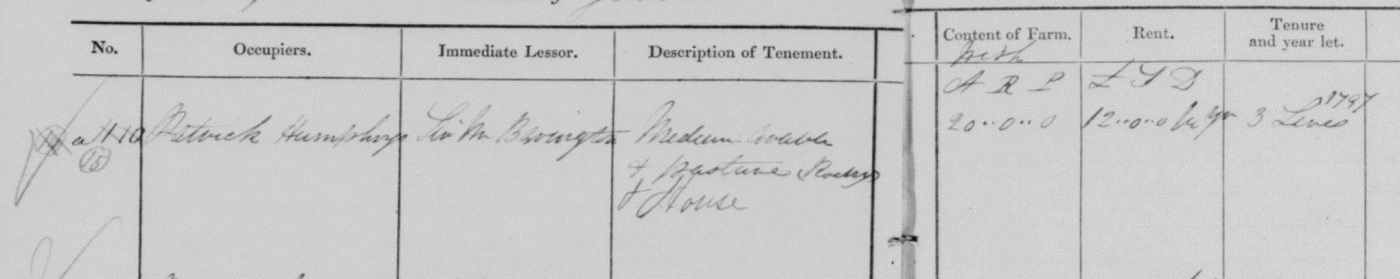 No. Occupiers. Immediate Lessor. Description of Tenement. Content of Farm. Rent. Tenure and year let.
Irish
A R P £ S D
a 10 Patrick Humphrys Sir Wm Barrington Medium arable 20..0..0 12..0..0 pr yr 3 Lives 1797
15
& pasture Rocky
& House